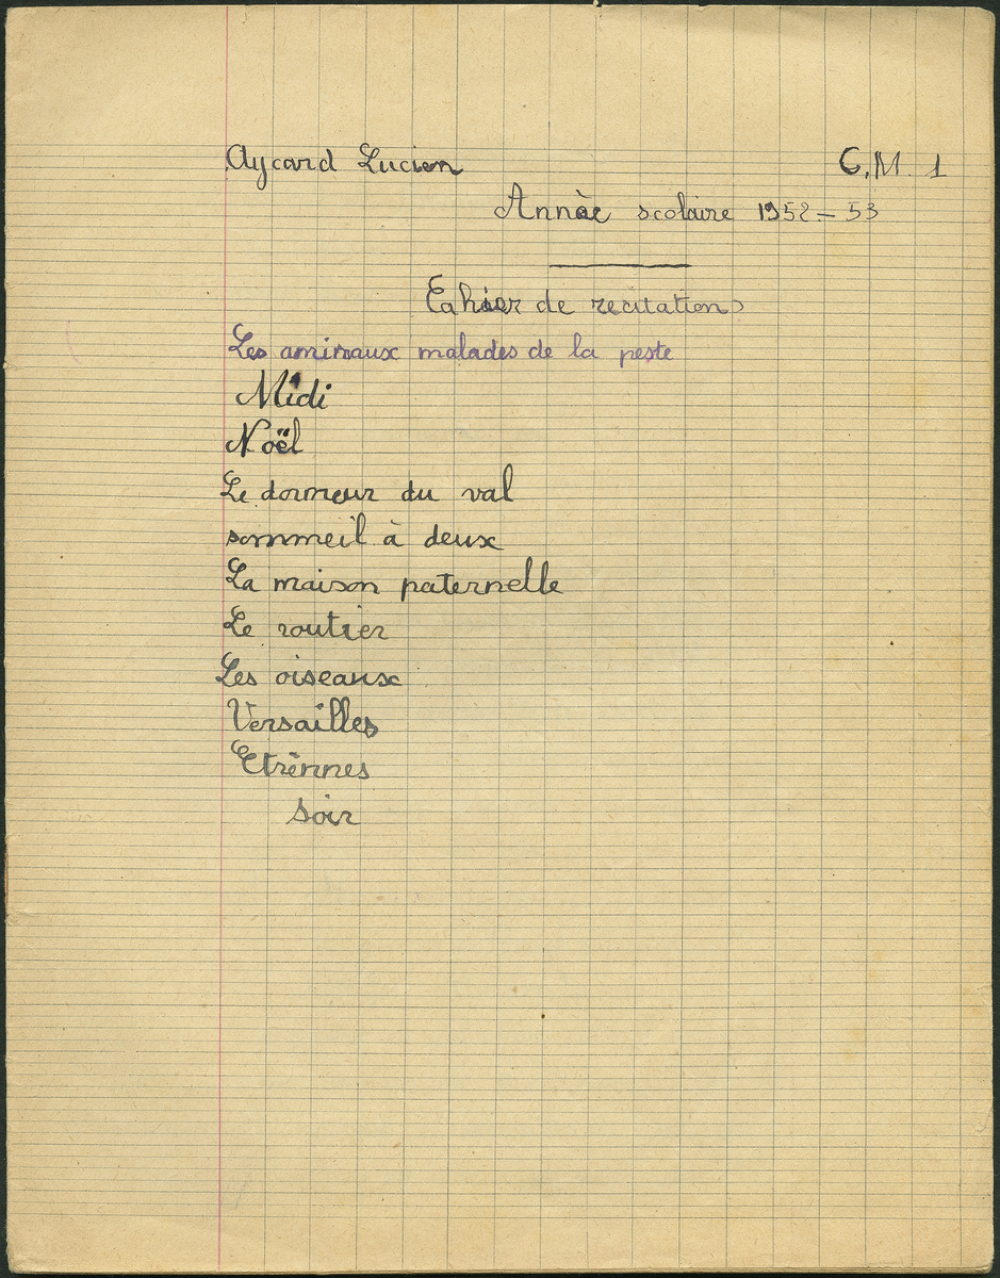 Aycard Lucien C.M. 1
Annèe scolaire 1952-53
Cahier de recitations
Les aminaux malades de la peste
Midi
Noël
Le dormeur du val
sommeil à deux
La maison paternelle
Le routier
Les oiseaux
Versailles
Etrênnes
Soir